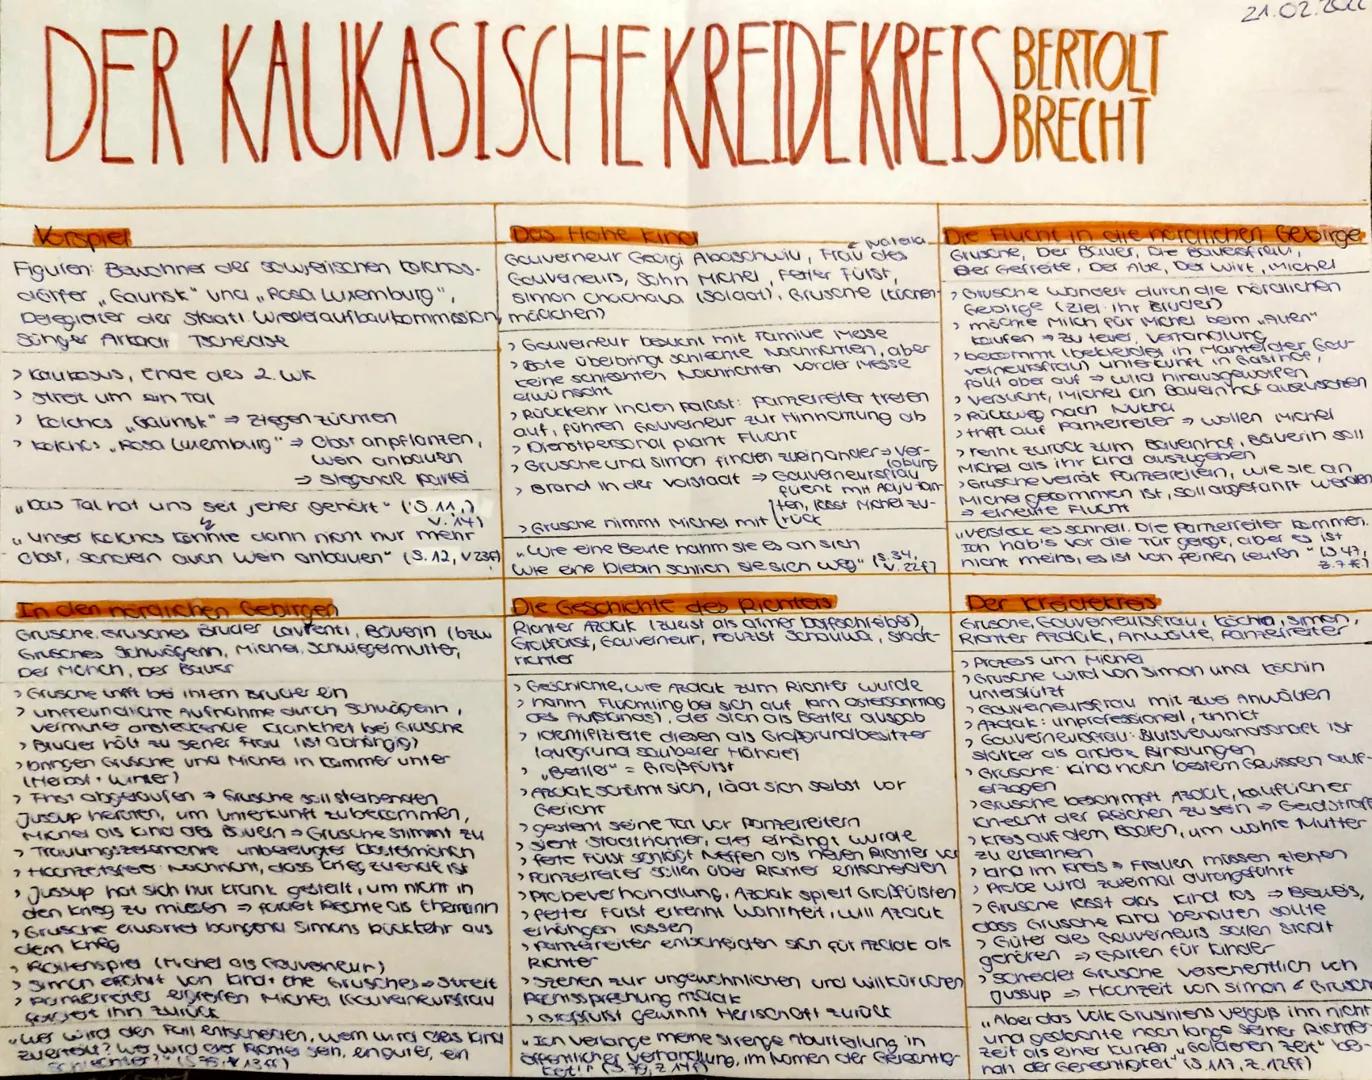 21.02.2022
DER KAUKASISCHE KREIDEKREIS
BERTOLT
BRECHT
Vorspiel
Figuren: Bewohner der sowjetischen Kolchos-
dörfer „Galinsk" und „Rosa Luxemburg",
Delegierter der staatl. Wiederaufbaukommission,
Sänger Arkadi Tscheidse
> Kaukasus, Ende des 2. WK
> Streit um ein Tal
> Kolchos „Galinsk" ⇒ Ziegen züchten
> Kolchos „Rosa Luxemburg" ⇒ Obst anpflanzen,
Wein anbauen
⇒ siegende Partei
„Das Tal hat uns seit jeher gehört" (S. 11,
V. 14)
„Unser Kolchos könnte dann nicht nur mehr
Obst, sondern auch Wein anbauen" (S. 12, V 23f)
Das Hohe Kind
Gouverneur Georgi Abaschwili, Frau des
Natella
Gouverneurs, Sohn Michel, Fetter Fürst,
Simon Chachava (Soldat), Grusche (Küchen-
mädchen)
> Gouverneur besucht mit Familie Messe
> Bote überbringt schlechte Nachrichten, aber
keine schlechten Nachrichten vor der Messe
erwünscht
> Rückkehr in den Palast: Panzerreiter treten
auf, führen Gouverneur zur Hinrichtung ab
> Dienstpersonal plant Flucht
> Grusche und Simon finden zueinander ⇒ Ver-
lobung
> Brand in der Vorstadt ⇒ Gouverneursfrau
flieht mit Adjutan-
ten, lässt Michel zu-
rück
> Grusche nimmt Michel mit
„Wie eine Beute nahm sie es an sich
Wie eine Diebin schlich sie sich weg" (S. 34,
V. 22f)
Die Flucht in die nördlichen Gebirge
Grusche, Der Bauer, Die Bauersfrau,
Der Gefreite, Der Alte, Der Wirt, Michel
> Grusche wandert durch die nördlichen
Gebirge (Ziel: ihr Bruder)
> möchte Milch für Michel beim „Alten"
kaufen ⇒ zu teuer, Verhandlung
> bekommt (bekleidet in Mantel der Gou-
verneursfrau) Unterkunft in Gasthof,
fällt aber auf ⇒ wird hinausgeworfen
> versucht, Michel an Bauernhof auszusetzen
> Rückweg nach Nukha
> trifft auf Panzerreiter ⇒ wollen Michel
> rennt zurück zum Bauernhof, Bäuerin soll
Michel als ihr Kind ausgeben
> Grusche verrät Panzerreitern, wie sie an
Michel gekommen ist, soll abgeführt werden
⇒ erneute Flucht
„Versteck es schnell. Die Panzerreiter kommen.
Ich hab's vor die Tür gelegt, aber es ist
nicht meins, es ist von feinen Leuten" (S 47,
Z. 7 ff)
In den nördlichen Gebirgen
Grusche, Grusches Bruder Lavrenti, Bäuerin (bzw
Grusches Schwägerin, Michel, Schwiegermutter,
Der Mönch, Der Bauer
> Grusche trifft bei ihrem Bruder ein
> unfreundliche Aufnahme durch Schwägerin,
vermutet ansteckende Krankheit bei Grusche
> Bruder hält zu seiner Frau (ist abhängig)
> bringen Grusche und Michel in Kammer unter
(Herbst + Winter)
> Frist abgelaufen ⇒ Grusche soll sterbenden
Jussup heiraten, um Unterkunft zu bekommen,
Michel als Kind des Bauern ⇒ Grusche stimmt zu
> Trauungszeremonie unbefugter Klostermönch
> Hochzeitsfeier: Nachricht, dass Krieg zuende ist
> Jussup hat sich nur krank gestellt, um nicht in
den Krieg zu müssen ⇒ fordert Rechte als Ehemann
> Grusche erwartet bangend Simons Rückkehr aus
dem Krieg
> Rollenspiel (Michel als Gouverneur)
> Simon erfährt von Kind + Ehe Grusches ⇒ Streit
> Panzerreiter ergreifen Michel (Gouverneursfrau
fordert ihn zurück
„Wer wird den Fall entscheiden, wem wird das Kind
zuerteilt? Wer wird der Richter sein, ein guter, ein
schlechter?"
Die Geschichte des Richters
Richter Azdak (zuerst als armer Dorfschreiber),
Großfürst, Gouverneur, Polizist Schauwa, Stadt-
richter
> Geschichte, wie Azdak zum Richter wurde
> nahm Flüchtling bei sich auf (am Ostersonntag
des Aufstands), der sich als Bettler ausgab
> identifizierte diesen als Großgrundbesitzer
(aufgrund sauberer Hände)
> „Bettler" = Großfürst
> Azdak schämt sich, lädt sich selbst vor
Gericht
> gesteht seine Tat vor Panzerreitern
> sieht Stadtrichter, der erhängt wurde
> Fette Fürst schlägt Neffen als neuen Richter vor
> Panzerreiter sollen über Richter entscheiden
> Probeverhandlung, Azdak spielt Großfürsten
> Fetter Fürst erkennt Wahrheit, will Azdak
erhängen lassen
> Panzerreiter entscheiden sich für Azdak als
Richter
> Szenen zur ungewöhnlichen und willkürlichen
Rechtssprechung Azdak
> Großfürst gewinnt Herrschaft zurück
„Ich verlange meine strenge Aburteilung in
öffentlicher Verhandlung, im Namen der Gerechtig-
keit!" (S. 79, Z 14ff)
Der Kreidekreis
Grusche, Gouverneursfrau, Köchin, Simon,
Richter Azdak, Anwälte, Panzerreiter
> Prozess um Michel
> Grusche wird von Simon und Köchin
unterstützt
> Gouverneursfrau mit zwei Anwälten
> Azdak: unprofessionell, trinkt
> Gouverneursfrau: Blutsverwandschaft ist
stärker als andere Bindungen
> Grusche: Kind nach bestem Gewissen auf-
erzogen
> Grusche beschimpft Azdak, käuflicher
Knecht der Reichen zu sein ⇒ Geldstrafe
> Kreis auf dem Boden, um wahre Mutter
zu erkennen
> Kind im Kreis ⇒ Frauen müssen ziehen
> Probe wird zweimal durchgeführt
> Grusche lässt das Kind los ⇒ Beweis,
dass Grusche Kind behalten sollte
> Güter des Gouverneurs sollen Stadt
gehören ⇒ Garten für Kinder
> Scheidet Grusche versehentlich von
Jussup ⇒ Hochzeit von Simon & Grusche
„Aber das Volk Grusiniens vergaß ihn nicht
und gedachte noch lange seiner Richter-
zeit als einer kurzen „Goldenen Zeit" bei-
nah der Gerechtigkeit" (S. 117, Z. 12ff)